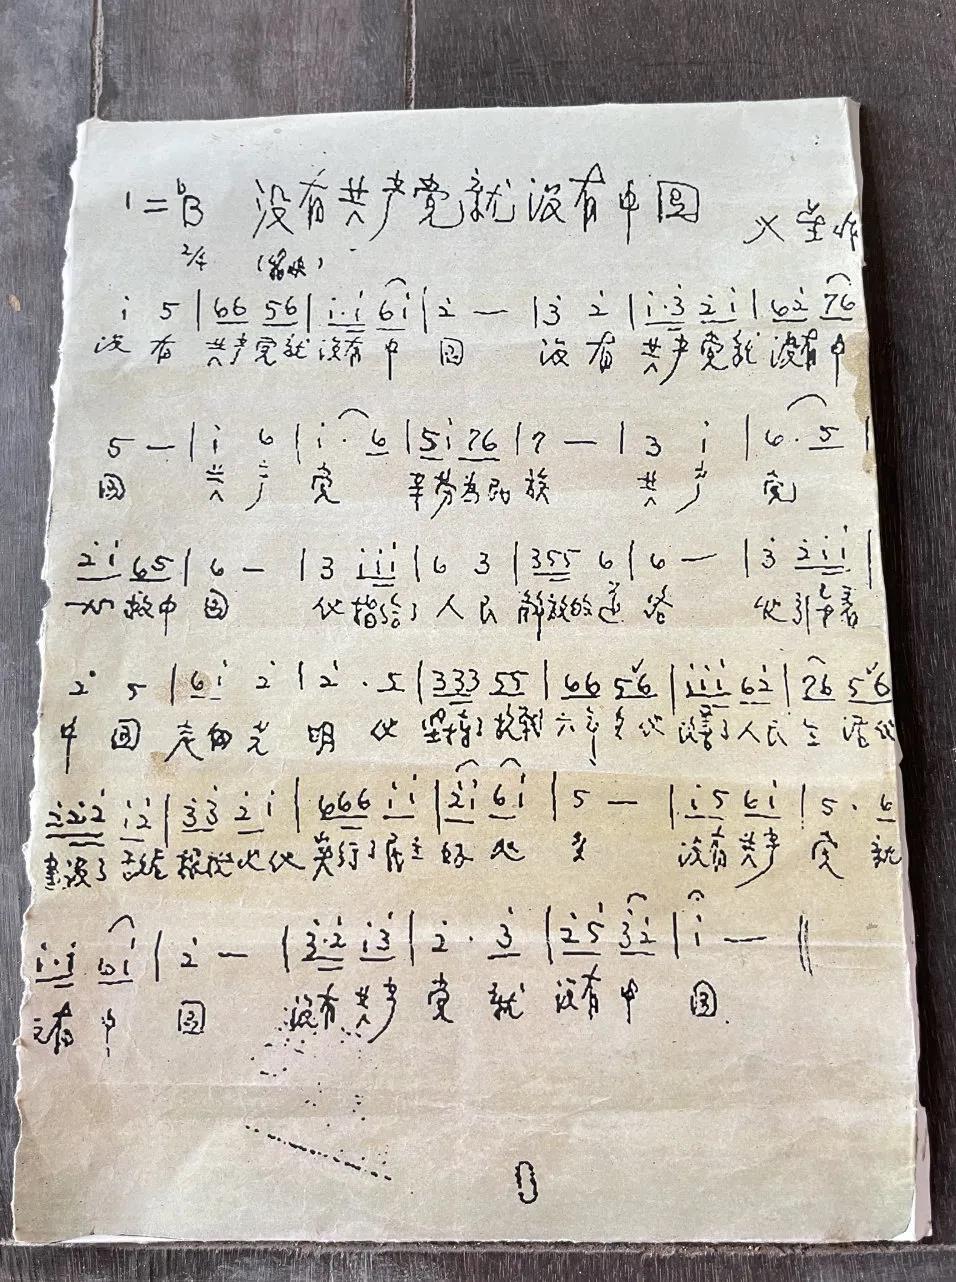 1=♭B 没有共产党就没有中国
2/4
i 5 | 66 56 | i·i 6i | 2 — | 3 2 | i·3 2i | 62 76
没有 共产党就没有中国 没有共产党就没有中
5 — | i 6 | i· 6 | 5i 76 | 7 — | 3 i | 6·5 |
国 共产党 辛劳为民族 共产党
2i 65 | 6 — | 3 iii | 6 3 | 355 6 | 6 — | 3 2ii |
一心救中国 他指给了人民解放的道路 他引导着
2 5 | 6i 2 | 2·5 | 333 55 | 66 56 | iii 62 | 76 56
中国走向光明 他坚持了抗战六年多 他改善了人民生活 他
222 i2 | 33 2i | 666 ii | 2i 6i | 5 — | i5 6i | 5·6
建设了敌后根据地 他实行了民主好处多 没有共产党就
i·i 6i | 2 — | 3·2 i3 | 2·3 | 25 32 | i — ‖
没有中国 没有共产党就没有中国